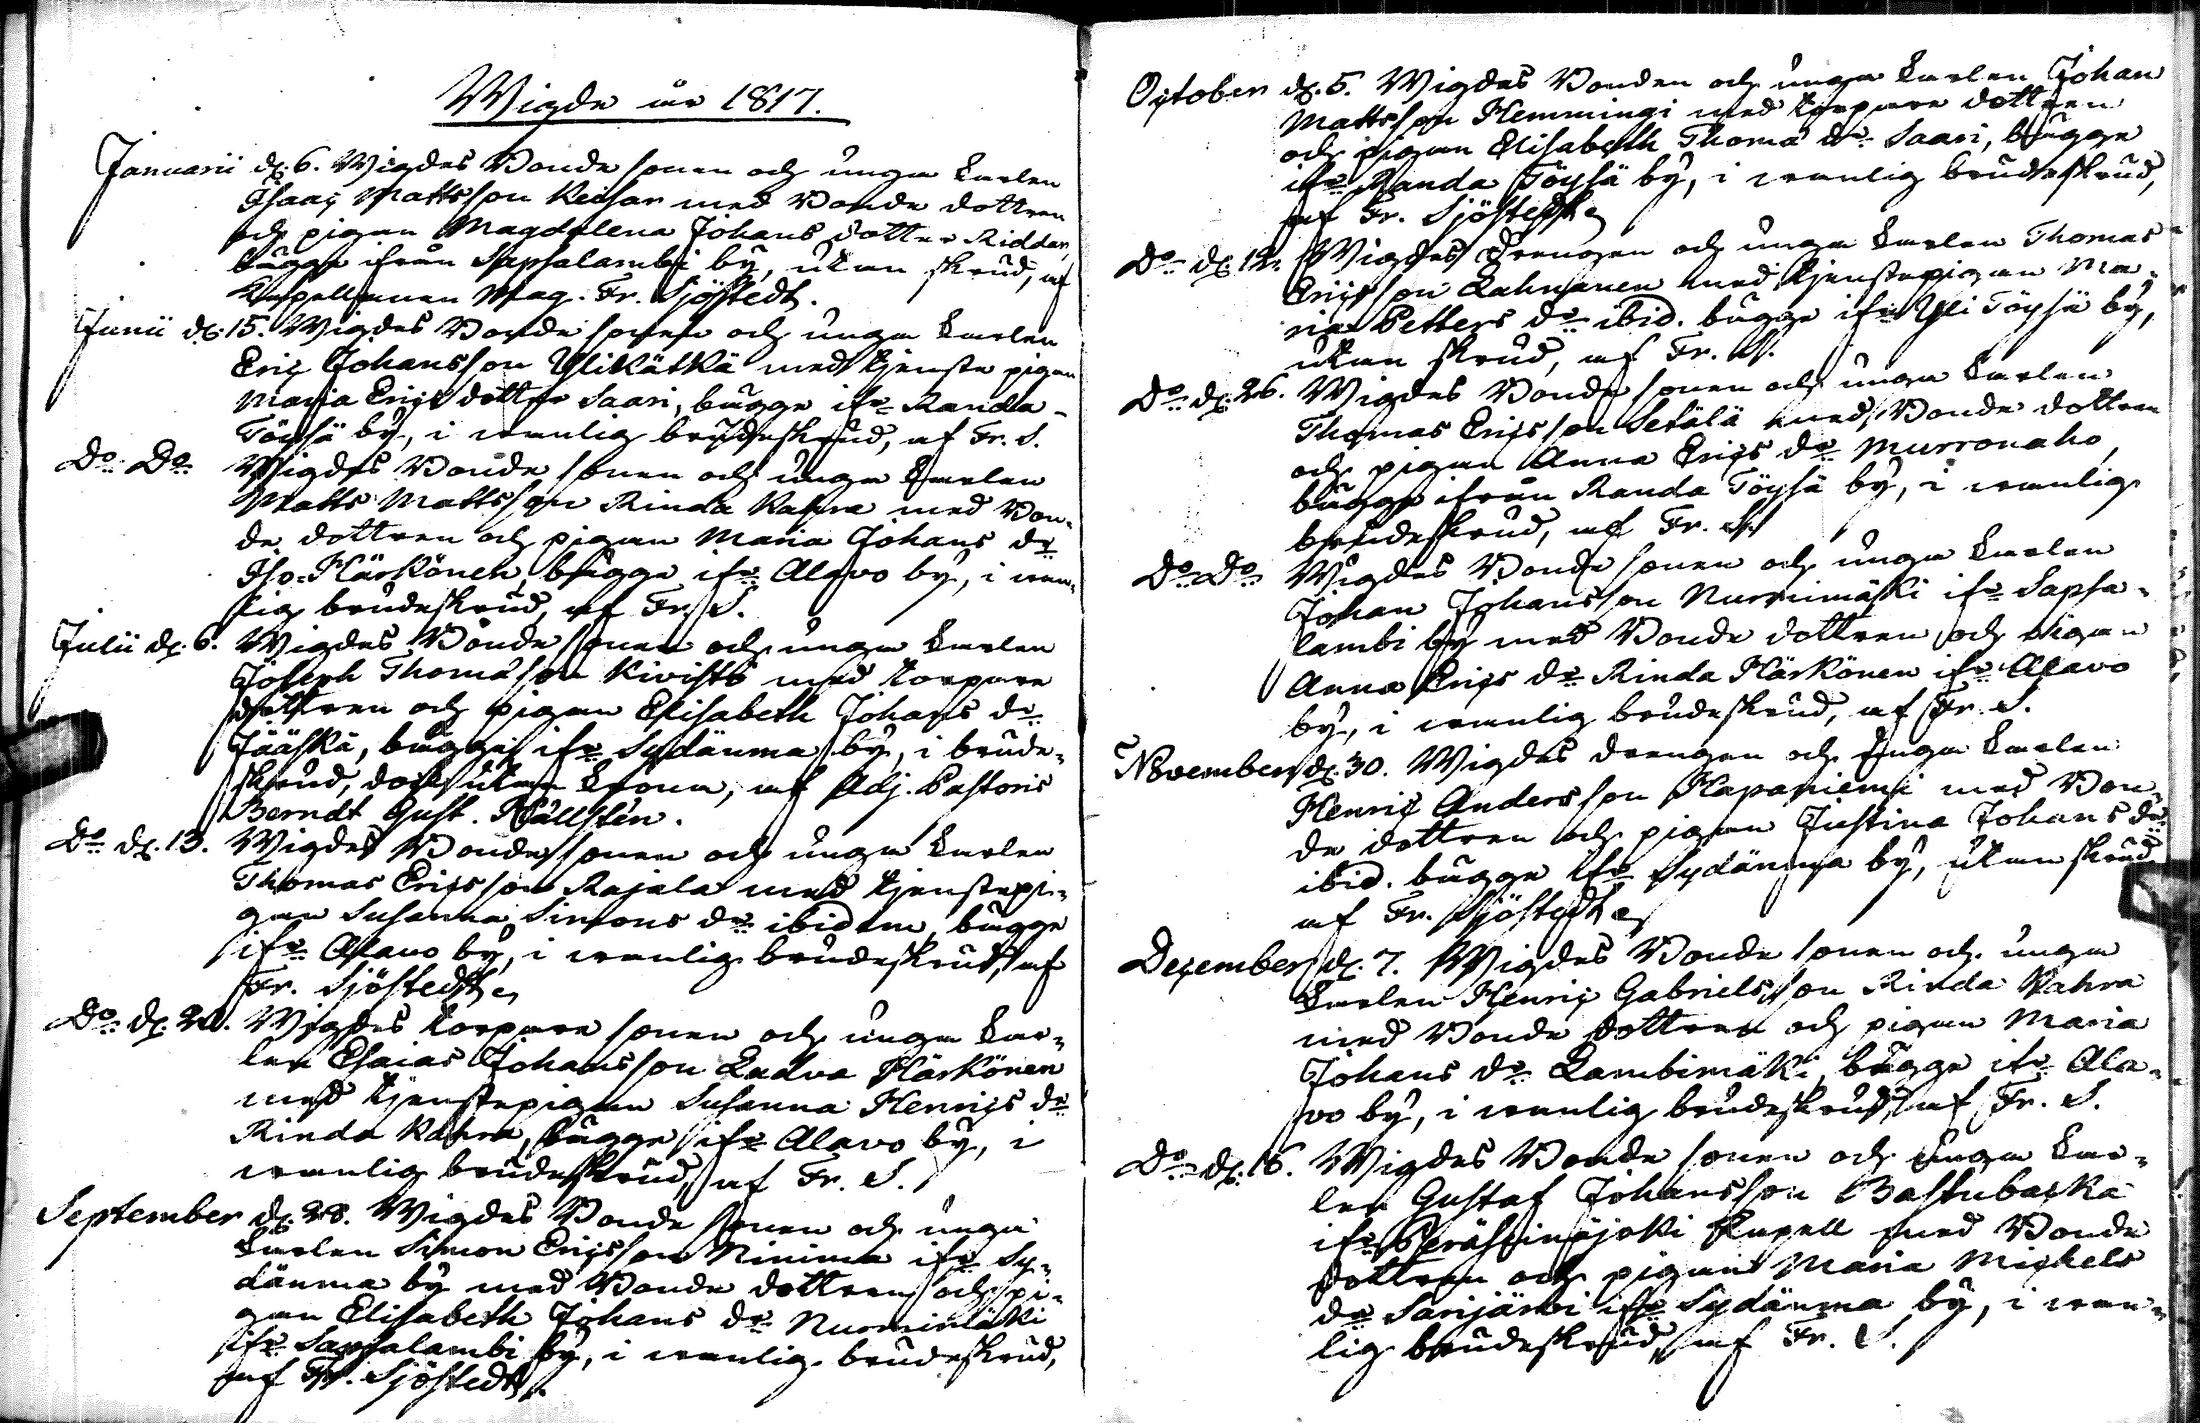 Wigde år 1817.
Januarii d. 6. Wigdes Bonde sonen och unga karlen
Isaac Mattsson Keisar med Bonde dottren
och pigan Magdalena Johans dotter Riddar,
bägge ifrån Sapsalambi by, utan skrud, af
Kapellanen Mag. Fr. Sjöstedt.
Junii d. 15. Wigdes Bonde sonen och unga karlen
Eric Johansson Ylikätkä med tjenste pigan
Maria Erics dotter Saari, bägge ifr Randa-
Töysä by, i wanlig brudeskrud, af Fr. S.
Do Do Wigdes Bonde sonen och unga karlen
Matts Mattsson Rinda Kahra med Bon-
de dottren och pigan Maria Johans dr
Iso-Härkönen, bägge ifr Alavo by, i wan-
lig brudeskrud, af Fr. S.
Julii d. 6. Wigdes Bonde sonen och unga karlen
Joseph Thomasson Kivistö med torpare
dottren och pigan Elisabeth Johans dr
Jääskä, bägge ifr Sydänma by, i brude-
skrud, dock utan krona, af Adj. Pastoris
Berndt Gust. Hällstén.
Do d. 13. Wigdes Bonde sonen och unga karlen
Thomas Ericsson Rajala med tjenstepi-
gan Susanna Simons dr ibidem, bägge
ifr Alavo by, i wanlig brudeskrud, af
Fr. Sjöstedt
Do d. 20. Wigdes torpare sonen och unga kar-
len Esaias Johansson Ladva Härkönen
med tjenstepigan Susanna Henrics dr
Rinda Kahra, bägge ifr Alavo by, i
wanlig brudeskrud, af Fr. S.
September d. 28. Wigdes Bonde sonen och unga
karlen Simon Ericsson Ninima ifr Sy-
dänma by med Bonde dottren och pi-
gan Elisabeth Johans dr Nurmimäki
ifr Sapsalambi by, i wanlig brudeskrud,
af Fr. Sjöstedt.
October d. 5. Wigdes Bonden och unga karlen Johan
Mattsson Hemmingi med torpare dottren
och pigan Elisabeth Thomæ dr Saari, bägge
ifr Randa Töysä by, i wanlig brudeskrud,
af Fr. Sjöstedt
Do d. 12. Wigdes Drengen och unga karlen Thomas
Ericsson Lahnanen med tjenstepigan Ma-
ria Petters dr ibid. bägge ifr Yli Töysä by,
utan skrud, af Fr. S.
Do d. 26. Wigdes Bonde sonen och unga karlen
Thomas Ericsson Setälä med Bonde dottren
och pigan Anna Erics dr Murronaho,
bägge ifrån Randa Töysä by, i wanlig
brudeskrud, af Fr. S.
Do Do Wigdes Bonde sonen och unga karlen
Johan Johansson Nurmimäki ifr Sapsa-
lambi by med Bonde dottren och pigan
Anna Erics dr Rinda Härkönen ifr Alavo
by, i wanlig brudeskrud, af Fr. S.
November d. 30. Wigdes drengen och unga karlen
Henric Andersson Hapaniemi med Bon-
de dottren och pigan Justina Johans dr
ibid. bägge ifr Sydänma by, utan skrud
af Fr. Sjöstedt
December d. 7. Wigdes Bonde sonen och unga
karlen Henric Gabrielsson Rinda Kahra
med Bonde dottren och pigan Maria
Johans dr Lambimäki, bägge ifr Ala-
vo by, i wanlig brudeskrud, af Fr. S.
Do d. 16. Wigdes Bonde sonen och unga kar-
len Gustaf Johansson Bastubacka
ifr Peräseinäjoki Kapell med Bonde
dottren och pigan Maria Michels
dr Sarijärvi ifr Sydänma by, i wan-
lig brudeskrud, af Fr. S.